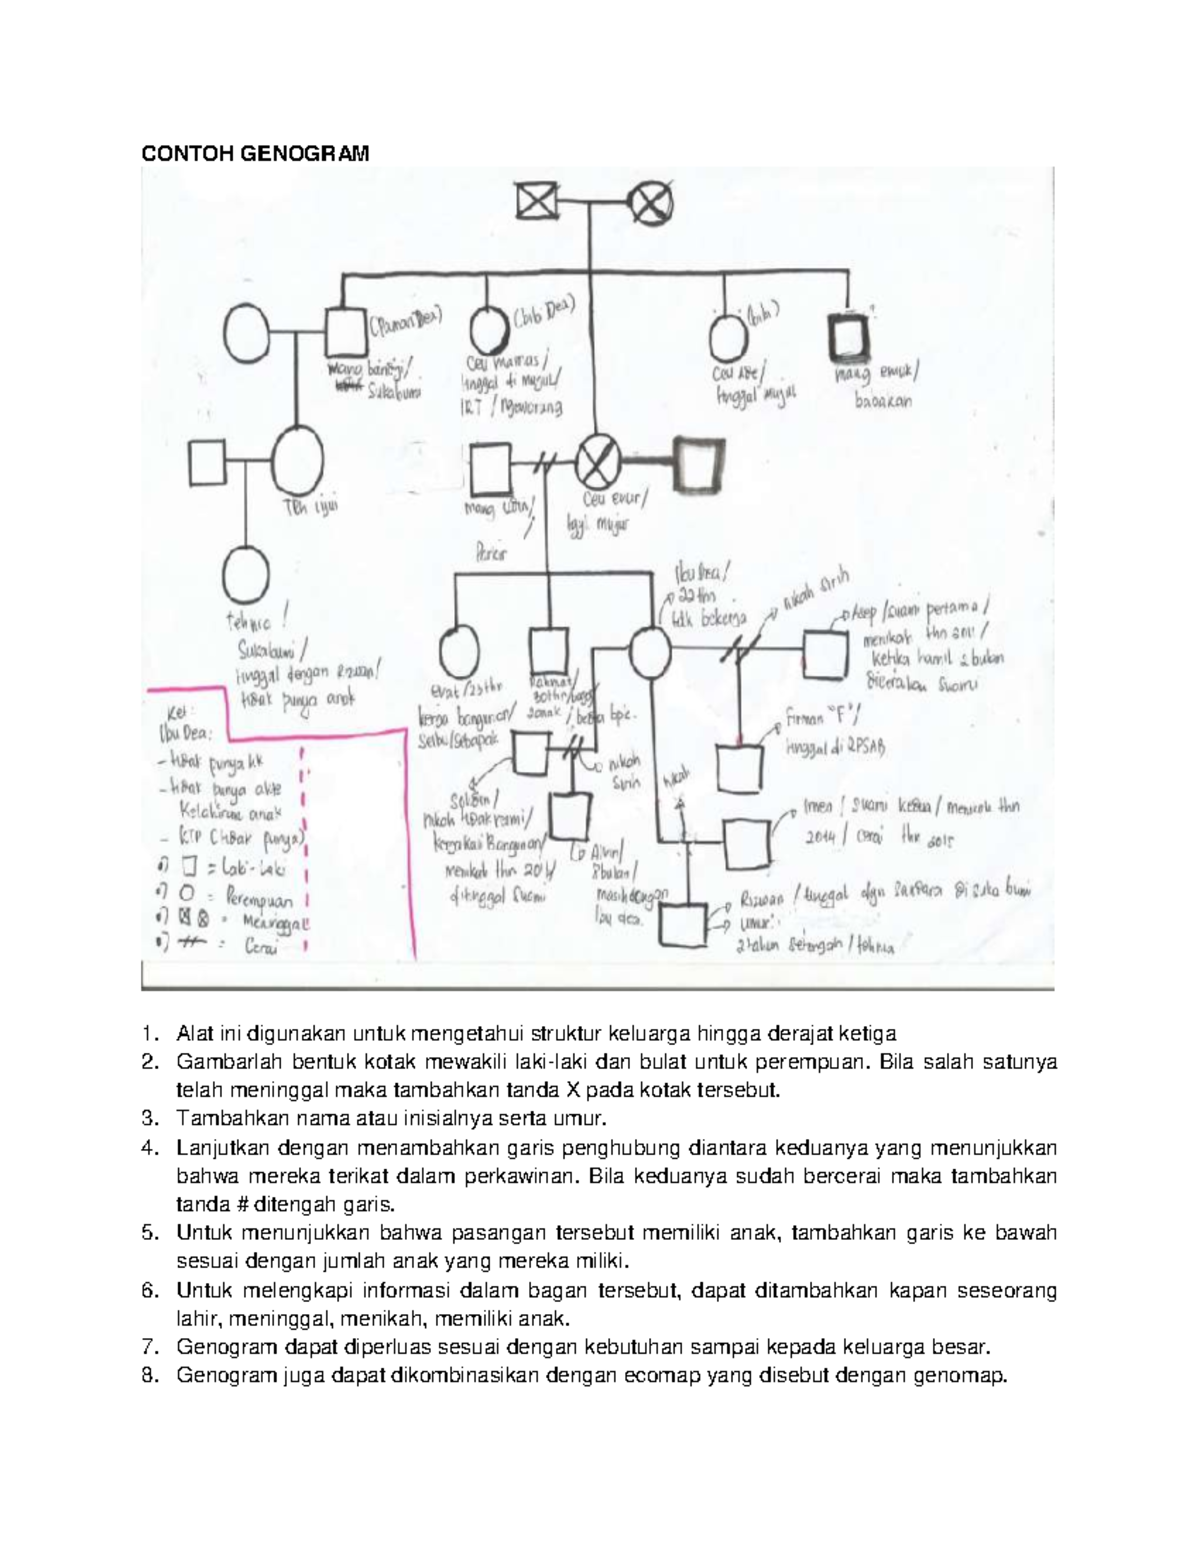 CONTOH GENOGRAM
(Paman Dea)
(bibi Dea)
(bibi)
Sukabumi
Ceu mamas/
tinggal di mujul/
IRT /
Ceu
tinggal mujul
mang emuk/
babakan
Teh
mang
Ceu
Ibu Dea/
22 thn
tdk bekerja
nikah sirih
Asep /suami pertama/
menikah thn 2011 /
ketika hamil 2 bulan
diceraikan suami
Sukabumi/
tinggal dengan
tidak punya anak
evat /23thn
kerja bangunan/
Rahmat/
30thn/
2 anak / beda bpk.
Firman "F"/
tinggal di RPSAB
Ket:
Ibu Dea:
- tidak punya kk
- tidak punya akte
Kelahiran anak
- KTP (tidak punya)
= Laki-laki
= Perempuan
= Meninggal
= Cerai
nikah
sirih
nikah
nikah tidak resmi/
kerja kuli Bangunan/
menikah thn
ditinggal suami
Alvin/
8 bulan/
masih dengan
Ibu dea.
Imen / suami kedua / menikah thn
2014 / cerai thn 2015
Riswan / tinggal dgn saudara di suka bumi
umur:
2 tahun setengah /
1. Alat ini digunakan untuk mengetahui struktur keluarga hingga derajat ketiga
2. Gambarlah bentuk kotak mewakili laki-laki dan bulat untuk perempuan. Bila salah satunya
telah meninggal maka tambahkan tanda X pada kotak tersebut.
3. Tambahkan nama atau inisialnya serta umur.
4. Lanjutkan dengan menambahkan garis penghubung diantara keduanya yang menunjukkan
bahwa mereka terikat dalam perkawinan. Bila keduanya sudah bercerai maka tambahkan
tanda # ditengah garis.
5. Untuk menunjukkan bahwa pasangan tersebut memiliki anak, tambahkan garis ke bawah
sesuai dengan jumlah anak yang mereka miliki.
6. Untuk melengkapi informasi dalam bagan tersebut, dapat ditambahkan kapan seseorang
lahir, meninggal, menikah, memiliki anak.
7. Genogram dapat diperluas sesuai dengan kebutuhan sampai kepada keluarga besar.
8. Genogram juga dapat dikombinasikan dengan ecomap yang disebut dengan genomap.